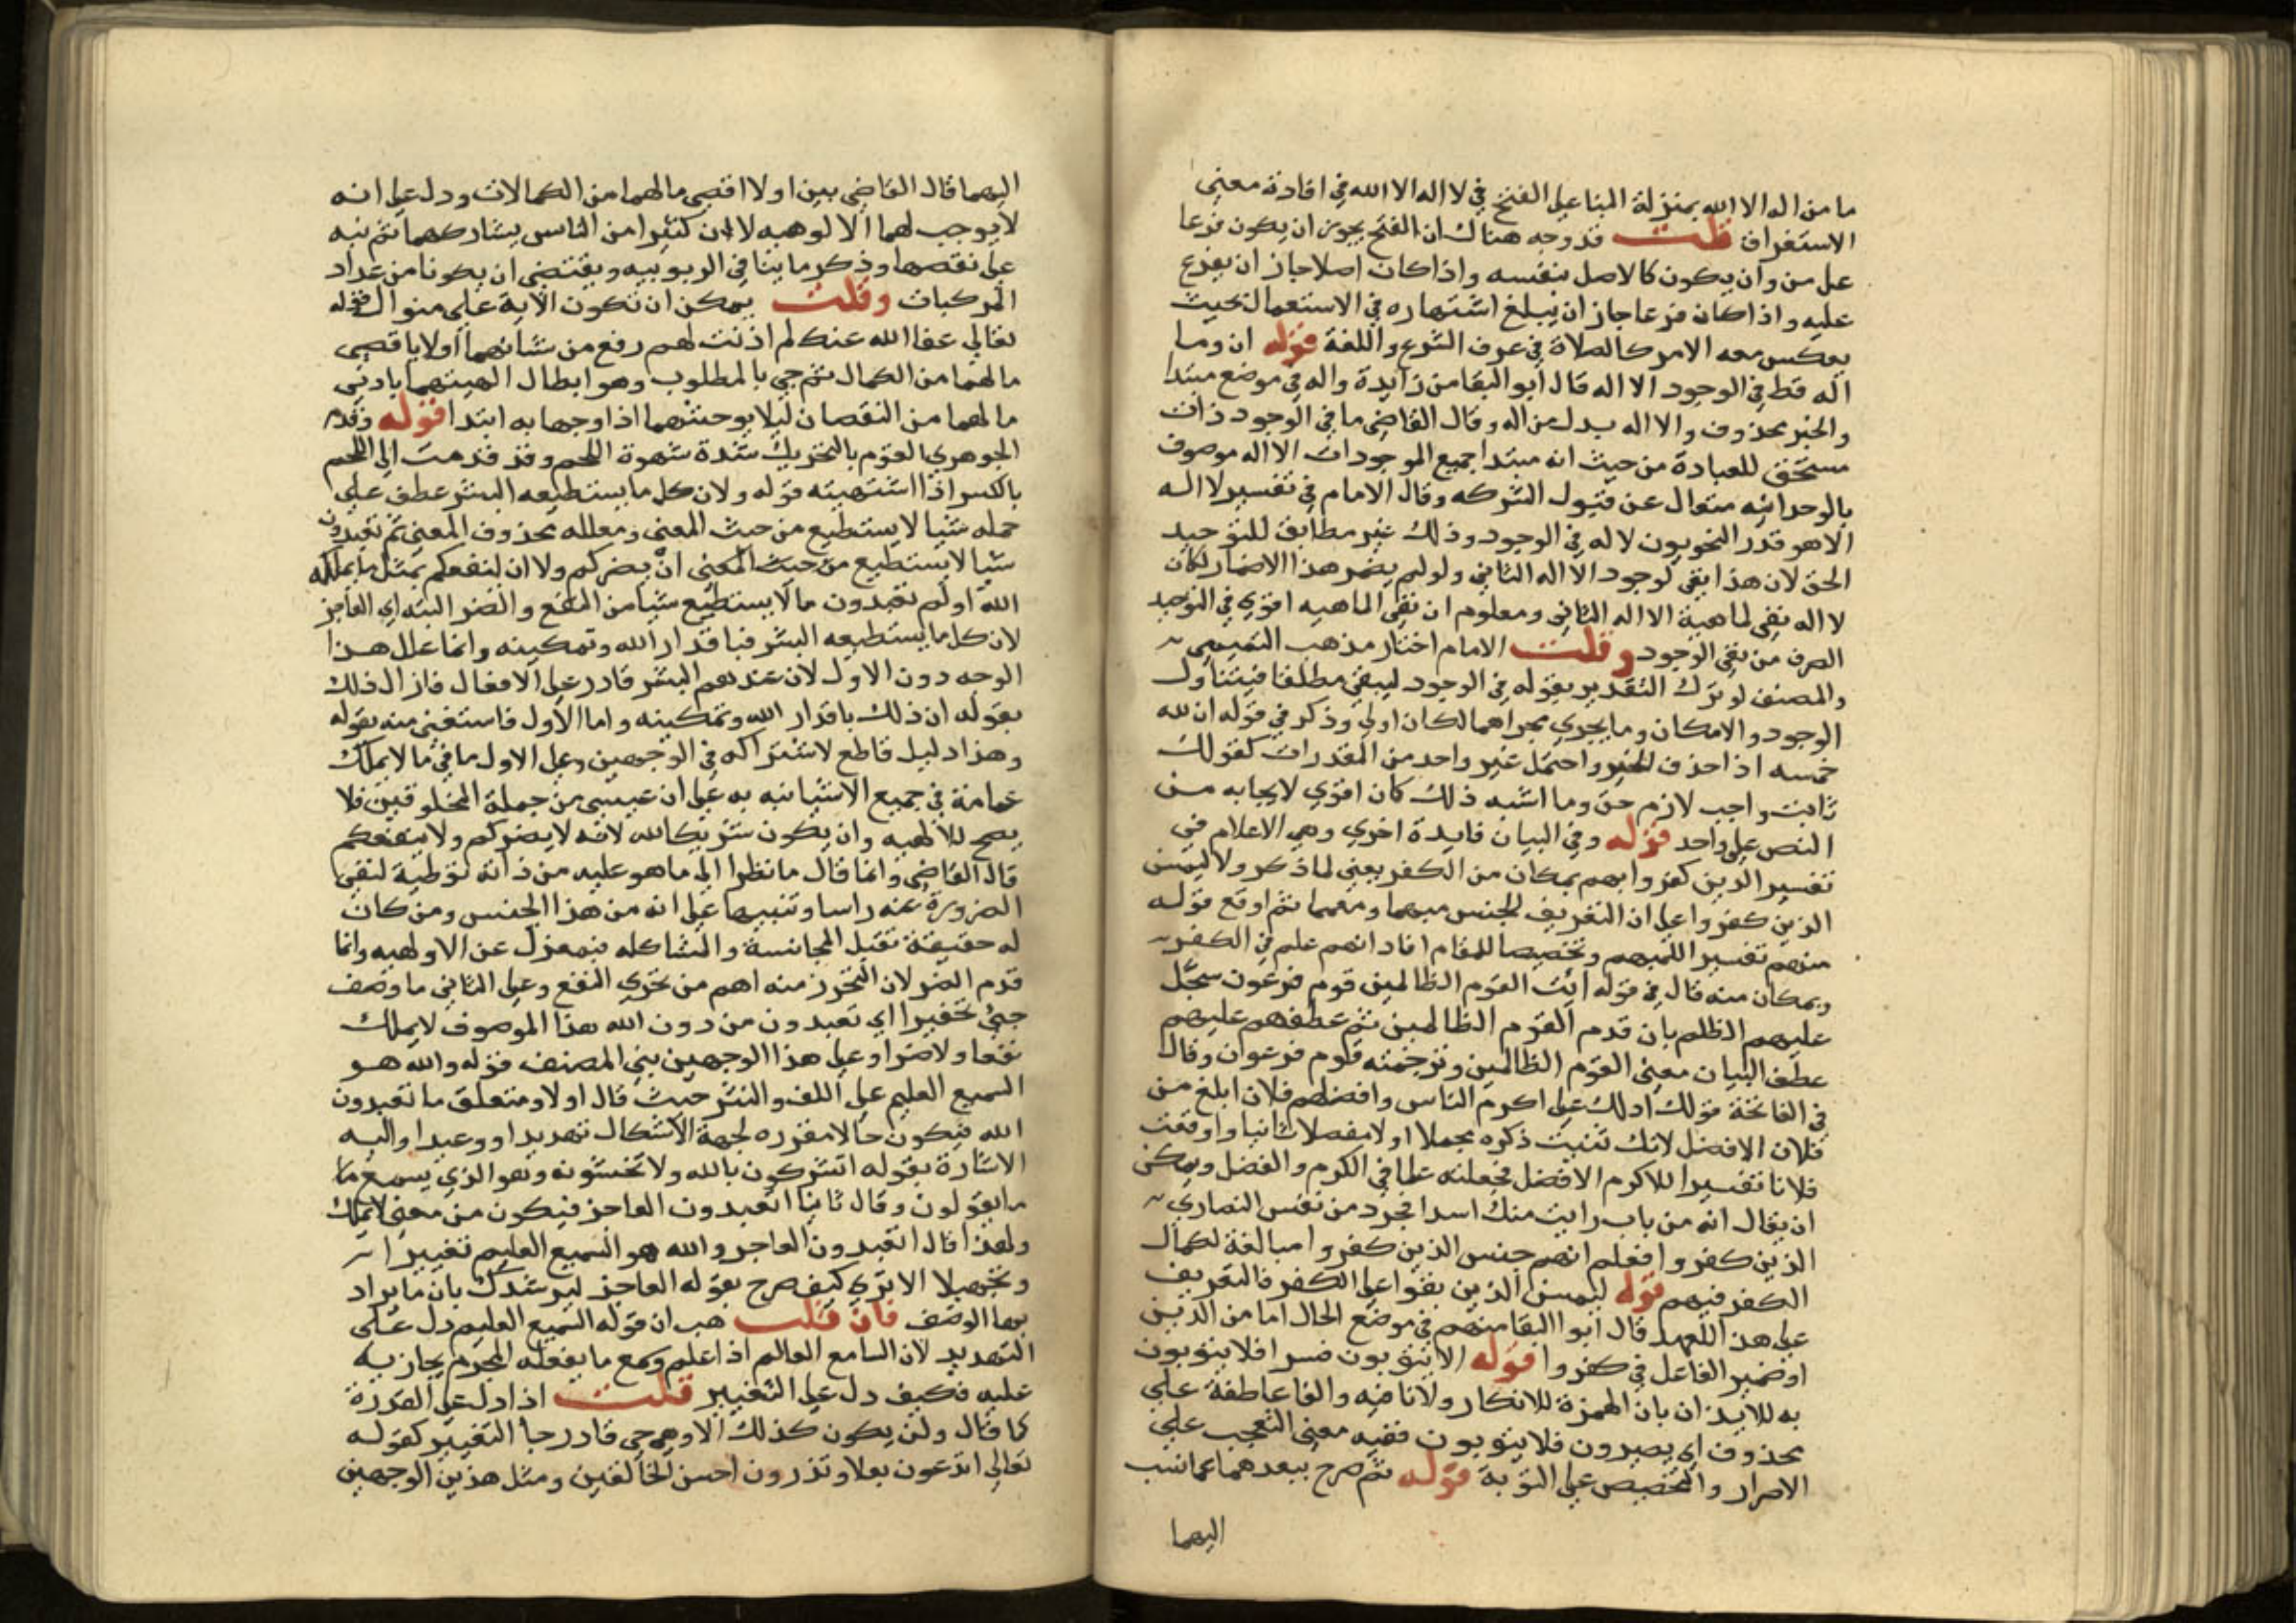 ما من اله الا الله بمنزلة البنا على الفتح في لا اله الا الله في افادة معنى
الاستغراق قلت قد وجه هناك ان الفتح يجوز ان يكون فرعا
على من وان يكون كالاصل بنفسه واذا كان اصلا جاز ان يفرع
عليه واذا كان فرعا جاز ان يبلغ اشتهاره في الاستعمال بحيث
يعكس معه الامر كالصلاة في عرف الشرع واللغة قوله ان وما
اله قط في الوجود الا اله قال ابو البقا من زايدة واله في موضع مبتدا
والخبر محذوف والا اله بدل من اله وقال القاضي ما في الوجود ذات
مستحق للعبادة من حيث انه مبتدا جميع الموجودات الا اله موصوف
بالوحدانيه متعال عن قبول الشركه وقال الامام في تفسير لا اله
الا هو قدر النحويون لا له في الوجود وذلك غير مطابق للتوحيد
الحق لان هذا نفي لوجود الا اله الثاني ولو لم يضمر هذا الاضمار لكان
لا اله نفي لماهية الا اله الثاني ومعلوم ان نفي الماهيه اقوى في التوحيد
الصرف من نفي الوجود وقلت الامام اختار مذهب التميمي
والمصنف لو ترك التقدير بقوله في الوجود ليبقى مطلقا فيتناول
الوجود والامكان وما يجري مجراهما لكان اولى وذكر في قوله ان لله
خمسه اذا حذف الخبر واحتمل غير واحد من المقدرات كقولك
ثابت واجب لازم حق وما اشبه ذلك كان اقوى لايجابه من
النص على واحد قوله وفي البيان فايدة اخرى وهي الاعلام في
تفسير الذين كفروا بهم بمكان من الكفر يعني لما ذكر ولا ليمسن
الذين كفروا على ان التعريف للجنس مبهما ومعمما ثم اوقع قوله
منهم تفسير اللمبهم وتخصيصا للمقام افاد انهم علم في الكفر
وبمكان منه قال في قوله ائت القوم الظالمين قوم فرعون سجل
عليهم الظلم بان قدم القوم الظالمين ثم عطفهم عليهم
عطف البيان معنى القوم الظالمين وترجمته قوم فرعوان وقال
في الفاتحة قولك ادلك على اكرم الناس وافضلهم فلان ابلغ من
فلان الافضل لانك ثنيت ذكره مجملا اولا مفصلا ثانيا واوقعت
فلانا تفسيرا للاكرم الافضل فجعلته علما في الكرم والفضل ويمكن
ان يقال انه من باب رايت منك اسدا فجرد من نفس النصارى
الذين كفروا فعلم انهم جنس الذين كفروا مبالغة لكمال
الكفر فيهم قوله ليمسن الذين بقوا على الكفر فالتعريف
على هذا للعهد قال ابوا البقا منهم في موضع الحال اما من الذين
او ضمير الفاعل في كفروا قوله الا يتوبون فسر افلا يتوبون
به للايذان بان الهمزة للانكار ولا نافيه والفا عاطفة على
محذوف اي يصرون فلا يتوبون ففيه معنى التعجب على
الاصرار والتحضيض على التوبة قوله ثم صرح ببعدهما عما نسب
اليهما
اليهما قال القاضي بين اولا اقصى ما لهما من الكمالات ودل على انه
لا يوجب لهما الا لوهيه لان كثيرا من الناس يشاركهما ثم نبه
على نقصهما وذكر ما ينافي الربوبيه ويقتضي ان يكونا من عداد
المركبات وقلت يمكن ان تكون الاية على منوال قوله
تعالى عفا الله عنك لم اذنت لهم رفع من شانهما اولا باقصى
ما لهما من الكمال ثم جي بالمطلوب وهو ابطال الهيتهما بادنى
ما لهما من النقصان ليلا يوحشهما اذا وجها به ابتدا قوله وقدم
الجوهري القوم بالتحريك شدة شهوة اللحم وقد قدمت الى اللحم
بالكسر اذا اشتهيته قوله ولان كل ما يستطيعه البشر عطف على
جمله شيا لا يستطيع من حيث المعنى ومعلله محذوف المعنى ثم تعبدون
شيا لا يستطيع من حيث المعنى ان يضركم ولا ان ينفعكم بمثل ما يملكه
الله او لم تعبدون ما لا يستطيع شيا من النفع والضر البته اي العاجز
لان كل ما يستطيعه البشر فباقدار الله وتمكينه وانما علل هذا
الوجه دون الاول لان عندهم البشر قادر على الافعال فازال ذلك
بقوله ان ذلك باقدار الله وتمكينه واما الاول فاستغنى منه بقوله
وهذا دليل قاطع لاشتراكه في الوجهين وعلى الاول ما في ما لا يملك
عامة في جميع الاشيا نبه به على ان عيسى من جملة المخلوقين فلا
يصح للالهيه وان يكون شريكا لله لانه لا يضركم ولا ينفعكم
قال القاضي وانما قال ما نظرا الى ما هو عليه من ذاته توطية لنفي
الضرورة عنه راسا وتنبيها على انه من هذا الجنس ومن كان
له حقيقة تقبل المجانسة والمشاكله فبمعزل عن الاولهيه وانما
قدم الضر لان التحرز منه اهم من تحري النفع وعلى الثاني ما وصف
جيئ تحقيرا اي تعبدون من دون الله هذا الموصوف لا يملك
نفعا ولا ضرا وعلى هذا الوجهين بنى المصنف قوله والله هو
السميع العليم على اللف والنشر حيث قال اولا ومتعلق ما تعبدون
الله فيكون حالا مقرره لجهة الاشكال تهديدا ووعيدا واليه
الاشارة بقوله اتشركون بالله ولا تخشونه وهو الذي يسمع ما
ما يقولون وقال ثانيا اتعبدون العاجز فيكون من معنى لا يملك
ولهذا قال اتعبدون العاجز والله هو السميع العليم تغييرا
وتجهيلا الا ترى كيف صرح بقوله العاجز ليرشدك بان ما يراد
بها الوصف فان قلت هب ان قوله السميع العليم دل على
التهديد لان السامع العالم اذا علم وسمع ما يفعله المجرم يجازيه
عليه فكيف دل على التغيير قلت اذا دل على القدرة
كما قال ولن يكون كذلك الا وهو حي قادر جا التغيير كقوله
تعالى اتدعون بعلا وتذرون احسن الخالقين ومثل هذين الوجهين